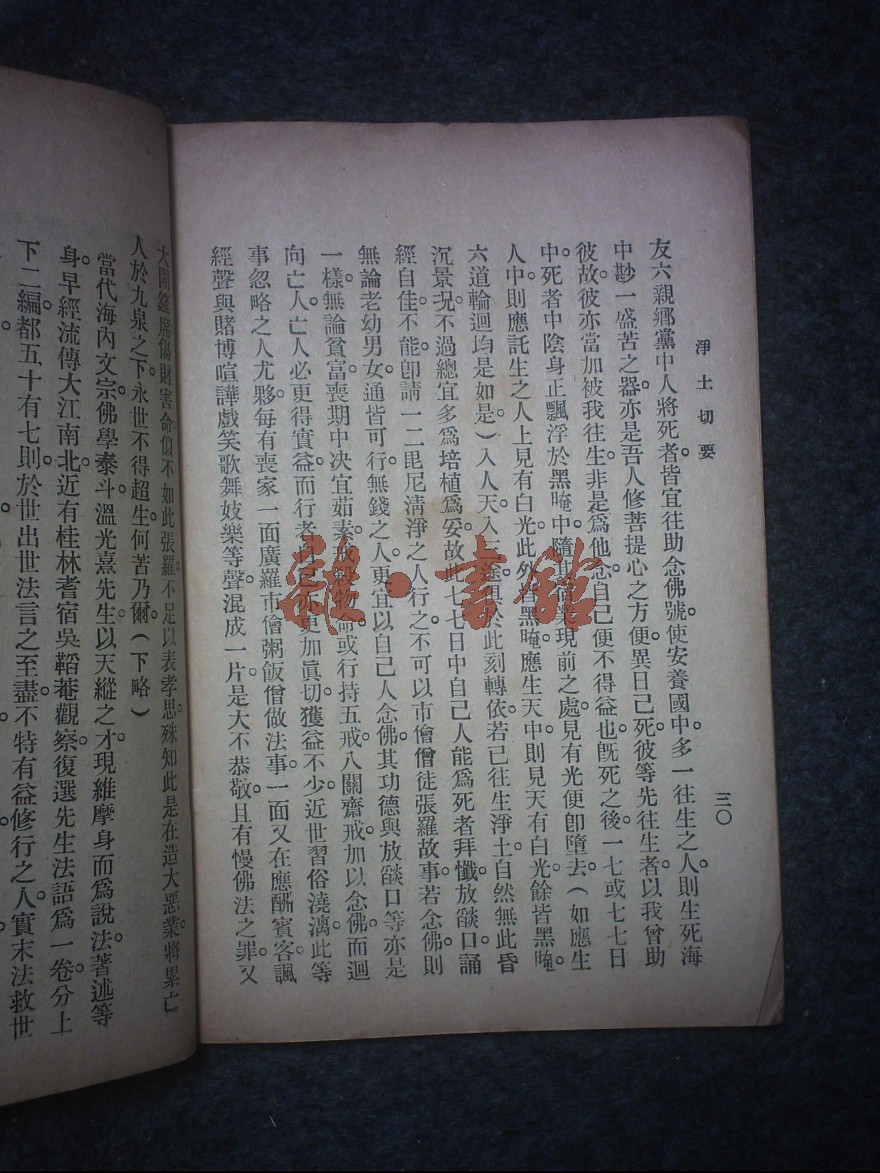 淨土切要
三〇
友六親鄉黨中人將死者皆宜往助念佛號。使安養國中。多一往生之人。則生死海
中尠一盛苦之器。亦是吾人修菩提心之方便。異日己死。彼等先往生者。以我曾助
彼故。彼亦當加被我往生。非是爲他念。自己便不得益也。旣死之後。一七或七七日
中。死者中陰身正飄浮於黑暗中。隨其宿業現前之處。見有光便卽墮去(如應生
人中。則應託生之人上見有白光。此外皆黑暗。應生天中。則見天有白光。餘皆黑暗。
六道輪迴均是如是。)入人天入三途。俱於此刻轉依。若已往生淨土。自然無此昏
沉景況。不過總宜多爲培植爲妥。故此七七日中。自己人能爲死者拜懺放燄口誦
經自佳。不能卽請一二毘尼淸淨之人行之。不可以市儈僧徒張羅故事。若念佛則
無論老幼男女。通皆可行。無錢之人。更宜以自己人念佛。其功德與放燄口等亦是
一樣。無論貧富。喪期中決宜茹素。戒殺物命。或行持五戒。八關齋戒。加以念佛。而迴
向亡人。亡人必更得實益。而行者自己亦更加眞切獲益不少。近世習俗澆漓。此等
事忽略之人尤夥。每有喪家一面廣羅市儈粥飯僧做法事。一面又在應酬賓客。諷
經聲與賭博喧譁戲笑歌舞妓樂等聲。混成一片。是大不恭敬。且有慢佛法之罪。又
大開筵席。傷財害命。似不如此張羅。不足以表孝思。殊知此是在造大惡業。將累亡
人於九泉之下。永世不得超生。何苦乃爾(下略)
當代海內文宗。佛學泰斗。溫光熹先生。以天縱之才。現維摩身而爲說法。著述等
身。早經流傳大江南北。近有桂林耆宿吳韜菴觀察。復選先生法語爲一卷。分上
下二編。都五十有七則。於世出世法言之至盡。不特有益修行之人。實末法救世